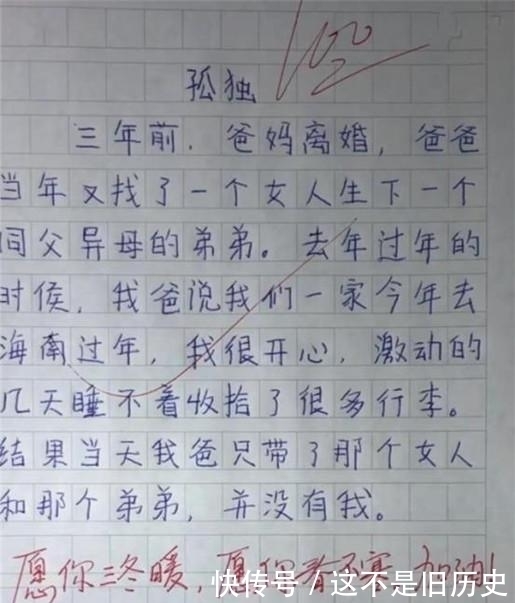 100
孤独
三年前，爸妈离婚，爸爸
当年又找了一个女人生下一个
同父异母的弟弟。去年过年的
时侯，我爸说我们一家今年去
海南过年，我很开心，激动的
几天睡不着收拾了很多行李。
结果当天我爸只带了那个女人
和那个弟弟，并没有我。
愿你三冬暖，愿你春不寒 加油！
快传号/这不是旧历史